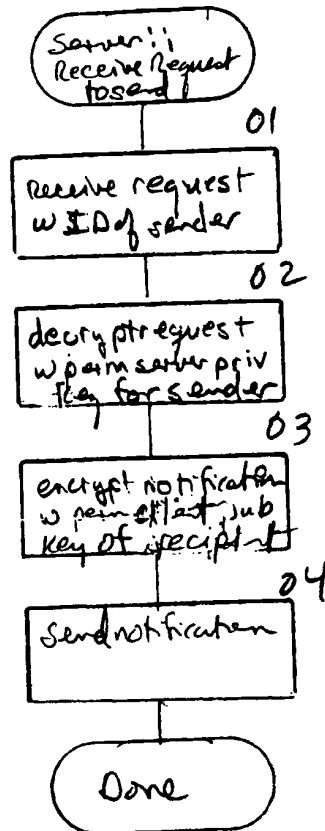 Server::
Receive Request
to send
01
receive request
w ID of sender
02
decrypt request
w perm server priv
key for sender
03
encrypt notification
w perm client pub
key of recipient
04
Send notification
Done